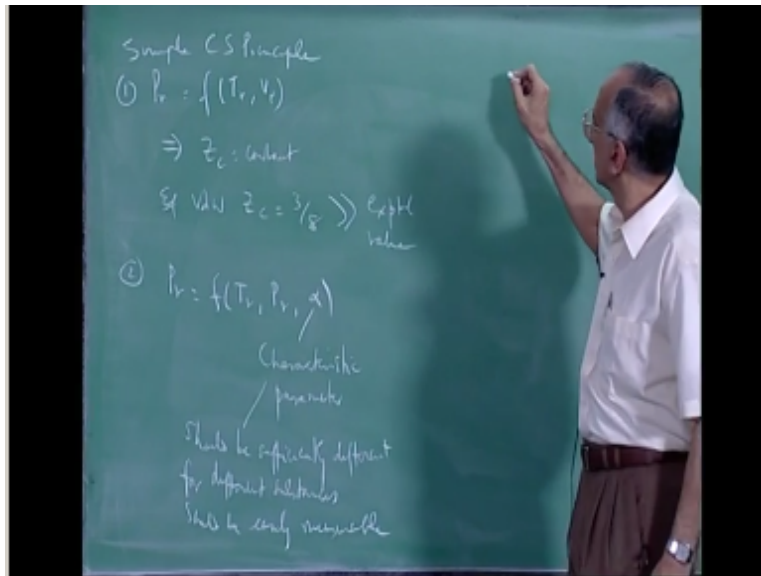 Simple CS Principle
① Pr = f(Tr, Vr)
⇒ Zc = constant
Eq vdW Zc = 3/8 >> Exptl
value
② Pr = f(Tr, Pr, α)
Characteristic
parameter
Should be sufficiently different
for different substances
Should be easily measurable